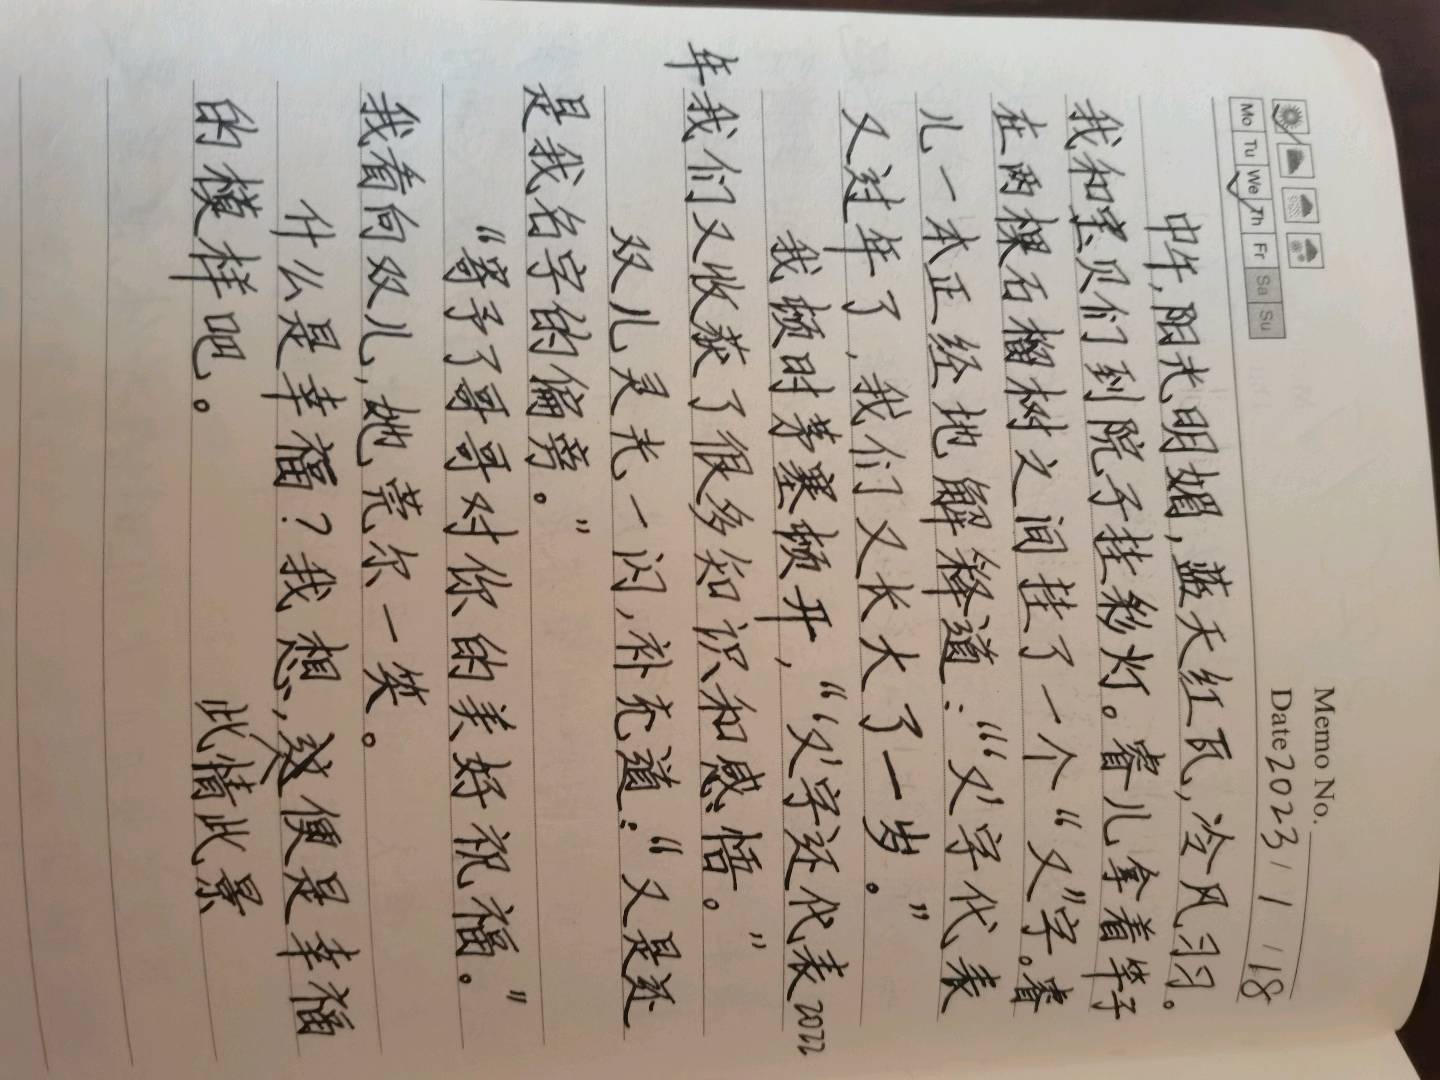 Memo No.
Mo Tu We Th Fr Sa Su
Date 2023 / 1 / 18
中午,阳光明媚,蓝天红瓦,冷风习习。
我和宝贝们到院子挂彩灯。睿儿拿着竿子
在两棵石榴树之间挂了一个“又”字。睿
儿一本正经地解释道:“‘又’字代表
又过年了,我们又长大了一岁。”
我顿时茅塞顿开,“‘又’字还代表2022
年我们又收获了很多知识和感悟。”
双儿灵光一闪,补充道:“又是还
是我名字的偏旁。”
“寄予了哥哥对你的美好祝福。”
我看向双儿,她莞尔一笑。
什么是幸福?我想,此情此景便是幸福
的模样吧。